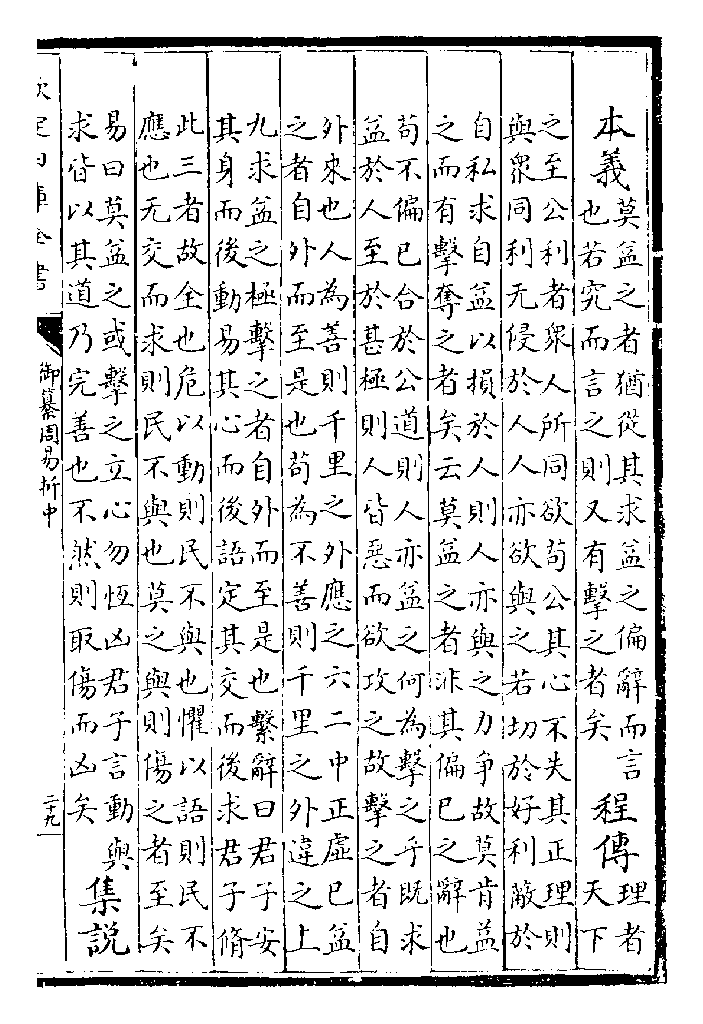 本義
莫益之者猶從其求益之偏辭而言
也若究而言之則又有擊之者矣
程傳
理者
天下
之至公利者衆人所同欲苟公其心不失其正理則
與衆同利无侵於人人亦欲與之若切於好利蔽於
自私求自益以損於人則人亦與之力争故莫肯益
之而有擊奪之者矣云莫益之者非其偏已之辭也
苟不偏已合於公道則人亦益之何為擊之乎既求
益於人至於甚極則人皆惡而欲攻之故擊之者自
外來也人為善則千里之外應之六二中正虛已益
之者自外而至是也苟為不善則千里之外違之上
九求益之極擊之者自外而至是也繫辭曰君子安
其身而後動易其心而後語定其交而後求君子脩
此三者故全也危以動則民不與也懼以語則民不
應也无交而求則民不與也莫之與則傷之者至矣
易曰莫益之或擊之立心勿恆凶君子言動與
求皆以其道乃完善也不然則取傷而凶矣
集說
欽定四庫全書
御纂周易折中
二十九